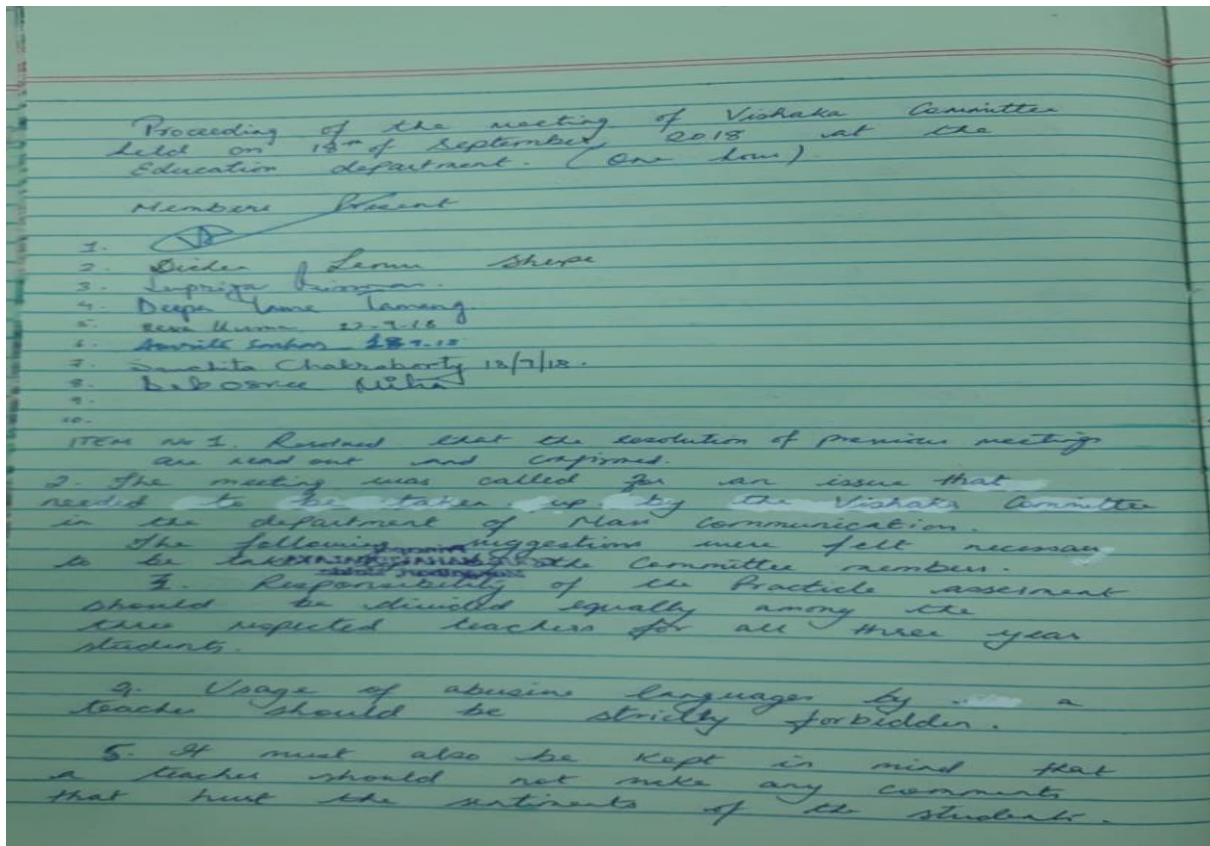 Proceeding of the meeting of Vishaka Committee
held on 18th of September, 2018 at the
Education department. (One hour).
Members Present
1.
2. Sherpa
3.
4. Deepa Lama Tamang
5. 27-9-18
6. 18.9.18
7. Sanchita Chakraborty 18/9/18.
8. Debosree Mitra
9.
10.
ITEM no 1. Resolved that the resolution of previous meetings
are read out and confirmed.
2. The meeting was called for an issue that
needed to be taken up by the Vishaka Committee
in the department of Mass Communication.
The following suggestions were felt necessary
to be the Committee members.
1. Responsibility of the Practicle assesment
should be divided equally among the
three teachers for all three year
students.
2. Usage of abusive languages by a
teacher should be strictly forbidden.
5. It must also be kept in mind that
a teacher should not make any comments
that hurt the sentiments of the students.